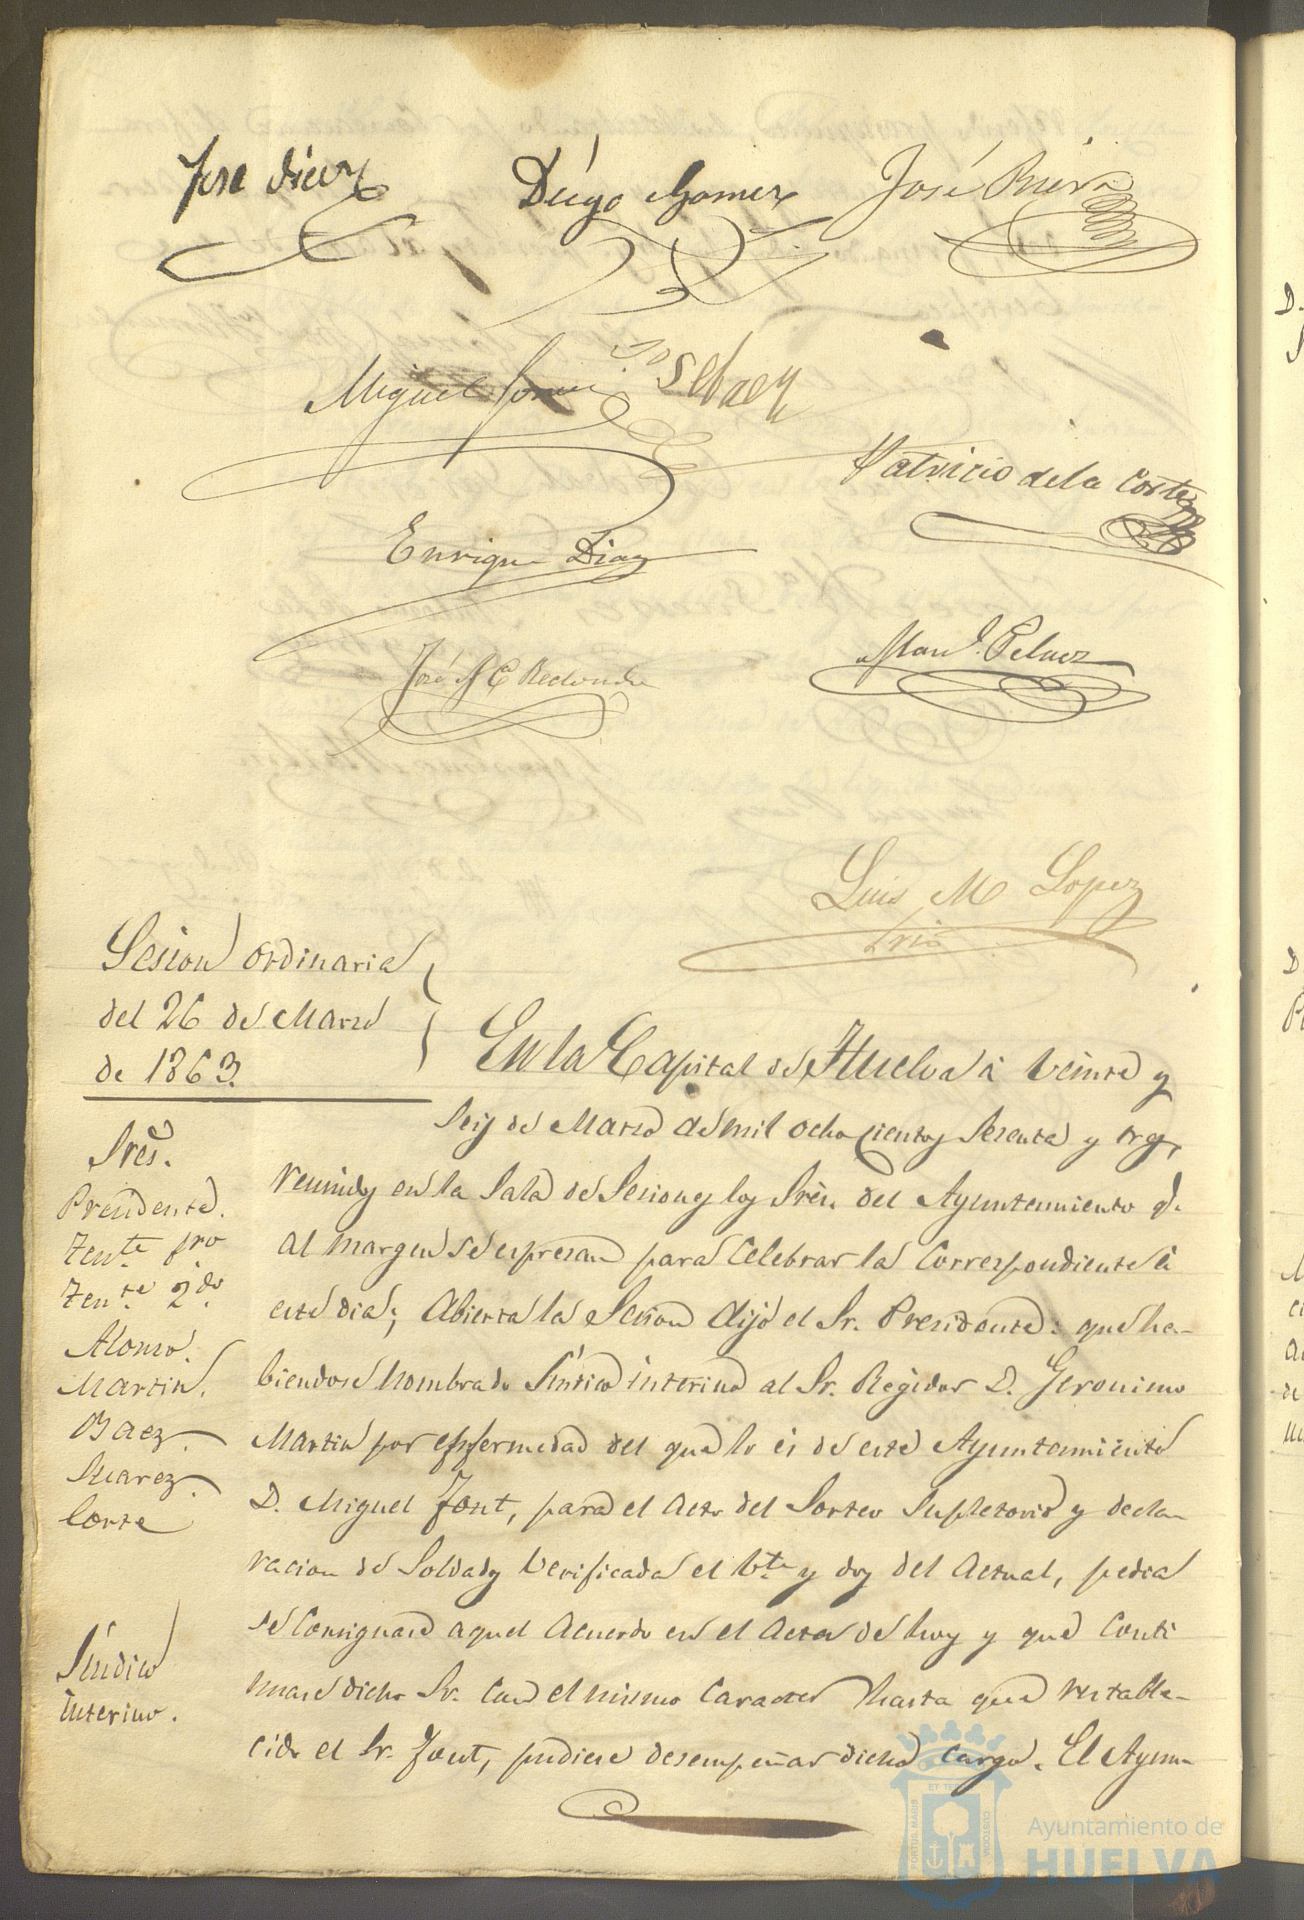 Jose Diaz
Diego Gomez
José Riera
Miguel Gomez
Jose Baez
Patricio de la Corte
Enrique Diaz
José Redondo
Man.l Pelaez
Luis M Lopez
Sesion ordinaria
del 26 de Marzo
de 1863.
Sres.
Presidente.
Tente. pro
Tente. 2do.
Alonso.
Martin.
Baez.
Suarez.
Corte
En la Capital de Huelva á veinte y
seis de Marzo de mil ochocientos sesenta y tres,
reunidos en la Sala de Sesiones los Sres. del Ayuntamiento q.
al margen se espresan para celebrar la correspondiente á
este dia; Abierta la Sesion dijo el Sr. Presidente: que ha-
biendose nombrado Síndico interino al Sr. Regidor D. Geronimo
Martin por enfermedad del que lo es de este Ayuntamiento
D. Miguel Font, para el acto del Sorteo Supletorio y decla-
racion de Soldados verificada el vte. y dos del actual, pedia
se consignase aquel acuerdo en el acta de hoy y que conti
nuase dicho Sr. con el mismo caracter hasta que restable-
cido el Sr. Font, pudiese desempeñar dicho cargo. El Ayun-
Síndico
interino.
Ayuntamiento de
HUELVA